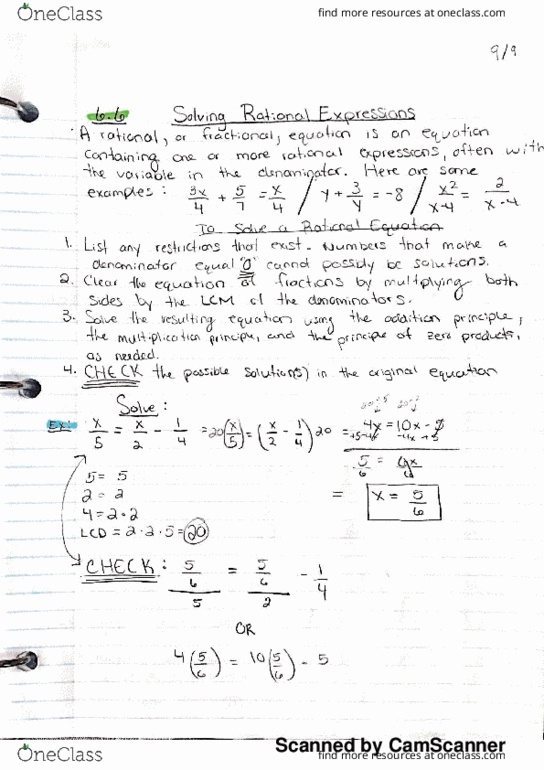 OneClass
find more resources at oneclass.com
9/9
6.6 Solving Rational Expressions
A rational, or fractional, equation is an equation
containing one or more rational expressions, often with
the variable in the denominator. Here are some
examples: 3x/4 + 5/7 = x/4 / y + 3/y = -8 / x²/x-4 = 2/x-4
To Solve a Rational Equation
1. List any restrictions that exist. Numbers that make a
denominator equal "0" cannot possibly be solutions.
2. Clear the equation of fractions by multiplying both
sides by the LCM of the denominators.
3. Solve the resulting equation using the addition principle,
the multiplication principle, and the principle of zero products,
as needed.
4. CHECK the possible solution(s) in the original equation
Solve:
Ex: x/5 = x/2 - 1/4 = 20(x/5) = (x/2 - 1/4) 20 = 4x = 10x - 5
5/6 = 6x/6
5 = 5
2 = 2
4 = 2·2
LCD = 2·2·5 = 20
= x = 5/6
CHECK: 5/6/5 = 5/6/2 - 1/4
OR
4(5/6) = 10(5/6) - 5
Scanned by CamScanner
OneClass
find more resources at oneclass.com